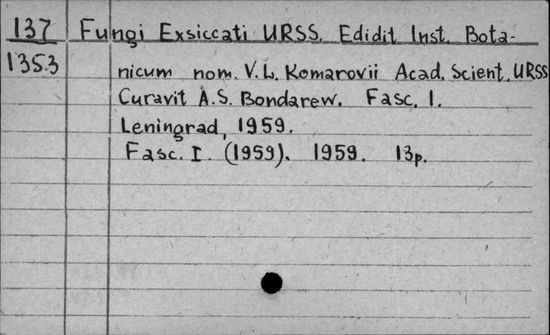 137 Fungi Exsiccati URSS. Edidit Inst. Bota-
1353 nicum nom. V. L. Komarovii Acad. Scient. URSS
Curavit A.S. Bondarew. Fasc. I.
Leningrad, 1959.
Fasc. I. (1959). 1959. 13p.